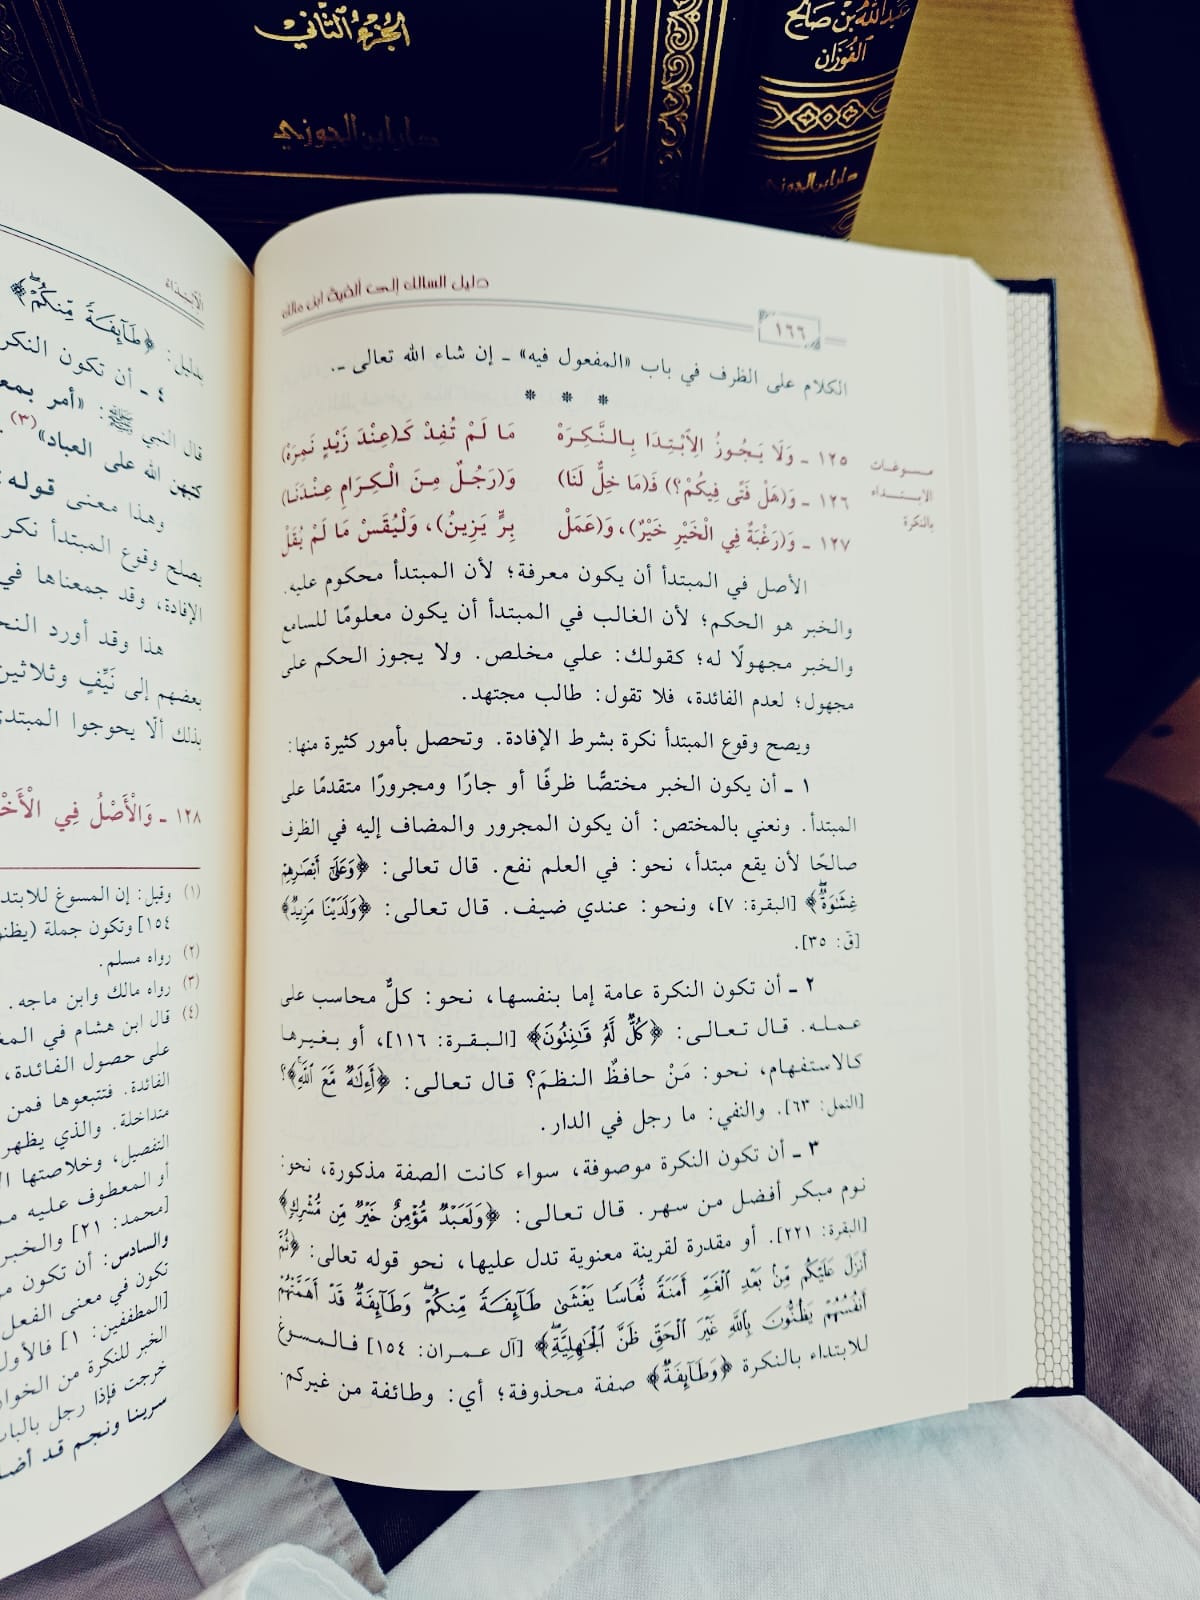 الجزء الثاني
دار ابن الجوزي
عبدالله بن صالح
الفوزان
دار ابن الجوزي
دليل السالك إلى ألفية ابن مالك
١٦٦
الكلام على الظرف في باب «المفعول فيه» ـ إن شاء الله تعالى ـ.
* * *
مسوغات
الابتداء
بالنكرة
١٢٥ ـ وَلَا يَجُوزُ الِابْتِدَا بِالنَّكِرَهْ مَا لَمْ تُفِدْ كَـ(عِنْدَ زَيْدٍ نَمِرَهْ)
١٢٦ ـ وَ(هَلْ فَتًى فِيكُمْ؟) فَـ(مَا خِلٌّ لَنَا) وَ(رَجُلٌ مِنَ الْكِرَامِ عِنْدَنَا)
١٢٧ ـ وَ(رَغْبَةٌ فِي الْخَيْرِ خَيْرٌ)، وَ(عَمَلْ بِرٍّ يَزِينُ)، وَلْيُقَسْ مَا لَمْ يُقَلْ
الأصل في المبتدأ أن يكون معرفة؛ لأن المبتدأ محكوم عليه.
والخبر هو الحكم؛ لأن الغالب في المبتدأ أن يكون معلومًا للسامع
والخبر مجهولًا له؛ كقولك: علي مخلص. ولا يجوز الحكم على
مجهول؛ لعدم الفائدة، فلا تقول: طالب مجتهد.
ويصح وقوع المبتدأ نكرة بشرط الإفادة. وتحصل بأمور كثيرة منها:
١ ـ أن يكون الخبر مختصًّا ظرفًا أو جارًا ومجرورًا متقدمًا على
المبتدأ. ونعني بالمختص: أن يكون المجرور والمضاف إليه في الظرف
صالحًا لأن يقع مبتدأ، نحو: في العلم نفع. قال تعالى: ﴿وَعَلَىٰٓ أَبْصَٰرِهِمْ
غِشَٰوَةٌۖ﴾ [البقرة: ٧]، ونحو: عندي ضيف. قال تعالى: ﴿وَلَدَيْنَا مَزِيدٌ﴾
[قَ: ٣٥].
٢ ـ أن تكون النكرة عامة إما بنفسها، نحو: كلٌّ محاسب على
عمله. قال تعالى: ﴿كُلٌّ لَّهُۥ قَٰنِتُونَ﴾ [البقرة: ١١٦]، أو بغيرها
كالاستفهام، نحو: مَنْ حافظٌ النظمَ؟ قال تعالى: ﴿أَءِلَٰهٌ مَّعَ ٱللَّهِۚ﴾؟
[النمل: ٦٣]. والنفي: ما رجل في الدار.
٣ ـ أن تكون النكرة موصوفة، سواء كانت الصفة مذكورة، نحو:
نوم مبكر أفضل من سهر. قال تعالى: ﴿وَلَعَبْدٌ مُّؤْمِنٌ خَيْرٌ مِّن مُّشْرِكٍ﴾
[البقرة: ٢٢١]. أو مقدرة لقرينة معنوية تدل عليها، نحو قوله تعالى: ﴿ثُمَّ
أَنزَلَ عَلَيْكُم مِّنۢ بَعْدِ ٱلْغَمِّ أَمَنَةً نُّعَاسًا يَغْشَىٰ طَآئِفَةً مِّنكُمْۖ وَطَآئِفَةٌ قَدْ أَهَمَّتْهُمْ
أَنفُسُهُمْ يَظُنُّونَ بِٱللَّهِ غَيْرَ ٱلْحَقِّ ظَنَّ ٱلْجَٰهِلِيَّةِۖ﴾ [آل عمران: ١٥٤] فالمسوغ
للابتداء بالنكرة ﴿وَطَآئِفَةٌ﴾ صفة محذوفة؛ أي: وطائفة من غيركم.
الابتداء
بدليل: ﴿طَآئِفَةً مِّنكُمْۖ﴾
٤ ـ أن تكون النكر
قال النبي ﷺ: «أمر بمع
كتبهن الله على العباد»(٣).
وهذا معنى قوله:
يصلح وقوع المبتدأ نكر
الإفادة، وقد جمعناها في
هذا وقد أورد النح
بعضهم إلى نَيِّفٍ وثلاثين
بذلك ألّا يحوجوا المبتدئ
١٢٨ ـ وَالْأَصْلُ فِي الْأَخْ
(١) وقيل: إن المسوغ للابتد
١٥٤] وتكون جملة (يظنو
(٢) رواه مسلم.
(٣) رواه مالك وابن ماجه.
(٤) قال ابن هشام في المغ
على حصول الفائدة،
الفائدة. فتتبعوها فمن
متداخلة. والذي يظهر
التفصيل، وخلاصتها ال
أو المعطوف عليه مـ
[محمد: ٢١] والخبر
والسادس: أن تكون مـ
تكون في معنى الفعل
[المطففين: ١] فالأول
الخبر للنكرة من الخوار
خرجت فإذا رجل بالباب
سرينا ونجم قد أضا